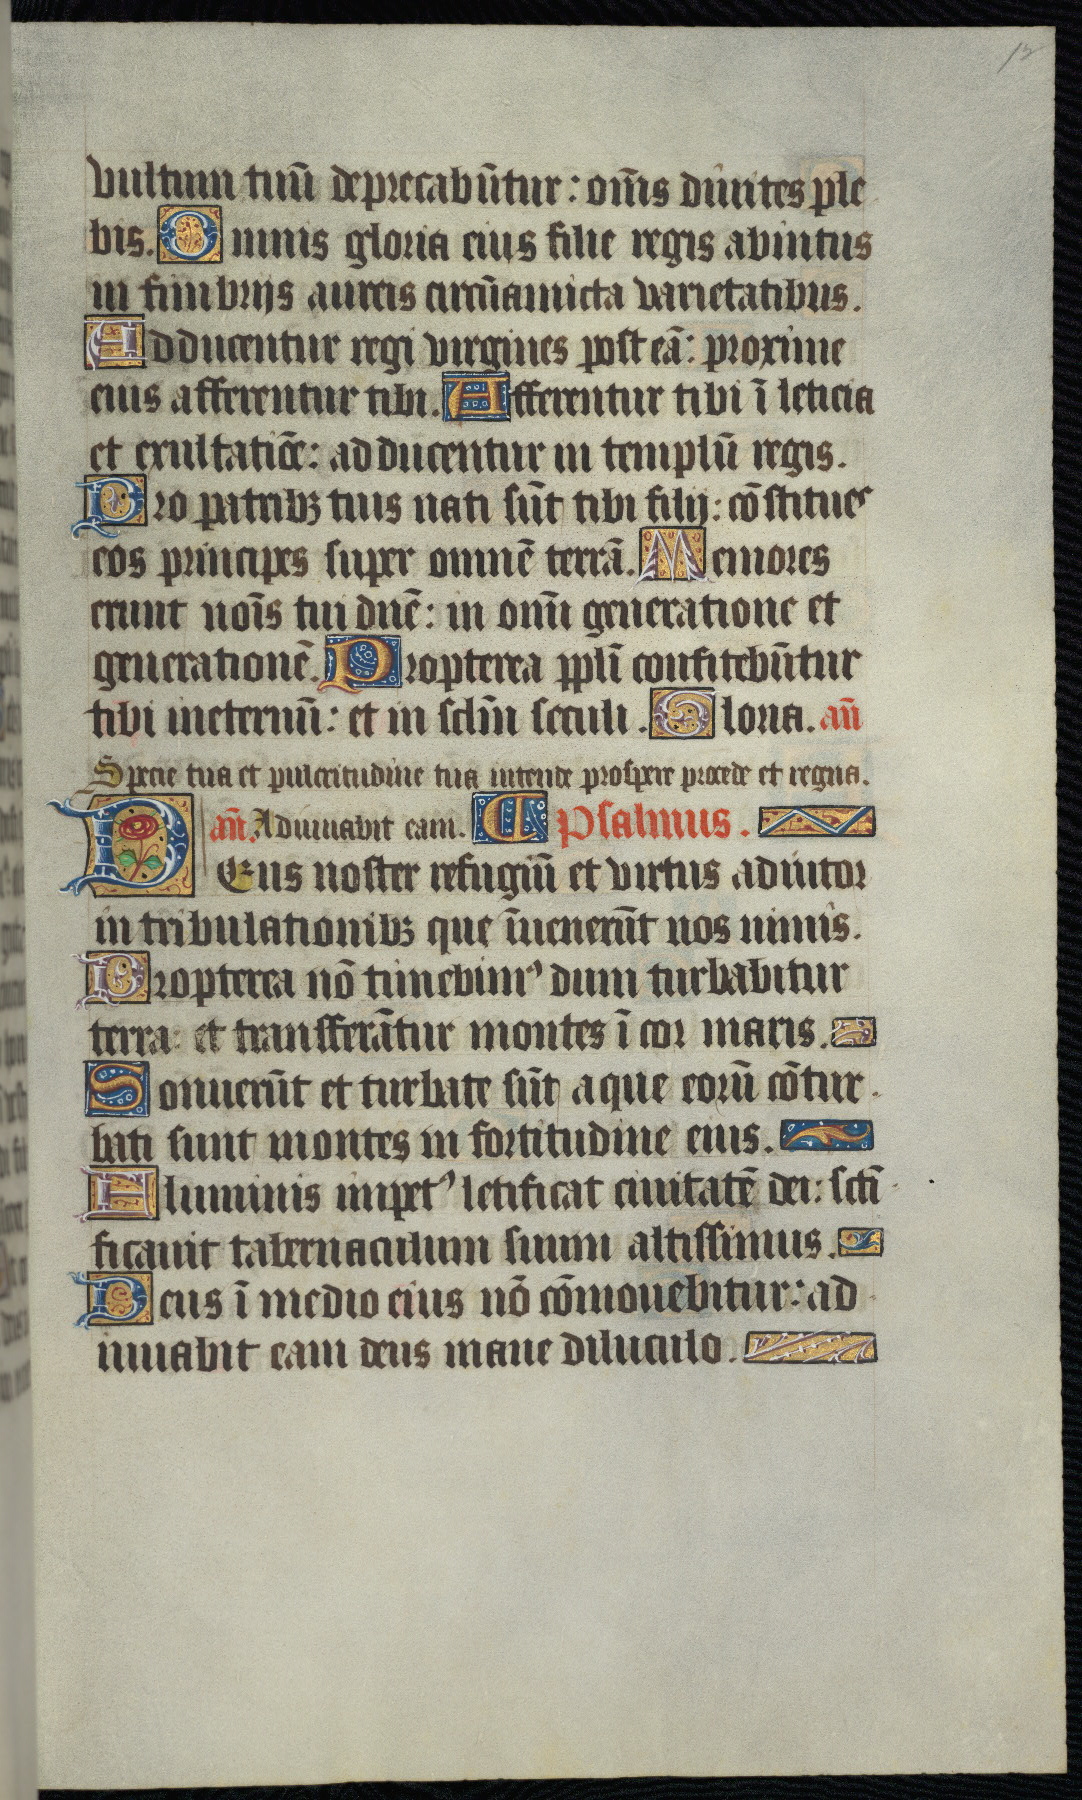 12
vultum tuū deprecabūtur: om̄s diuites ple
bis. Omnis gloria eius filie regis abintus
in fimbrijs aureis circūamicta varietatibus.
Adducentur regi virgines post eā: proxime
eius afferentur tibi. Afferentur tibi ī leticia
et exultatiōe: adducentur in templū regis.
Pro patribꝫ tuis nati sūt tibi filij: cōstitues
eos principes super omnē terrā. Memores
erunt noīs tui dn̄e: in omi̅ generatione et
generationē. Propterea ppl̄i confitebūtur
tibi ineternū: et in sclm̄ seculi. Gloria. an̄
Specie tua et pulcritudine tua intende prospere procede et regna.
an̄. Adiuuabit eam. Psalmus.
Deus noster refugiū et virtus adiutor
in tribulationibꝫ que īuenerūt nos nimis.
Propterea nō timebimꝰ dum turbabitur
terra: et transferātur montes ī cor maris.
Sonuerūt et turbate sūt aque eorū cōtur
bati sunt montes in fortitudine eius.
Fluminis impetꝰ letificat ciuitatē dei: scti̅
ficauit tabernaculum suum altissimus.
Deus ī medio eius nō cōmouebitur: ad
iuuabit eam deus mane diluculo.